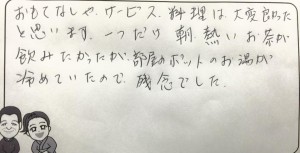 おもてなしや、サービス、料理は大変良かった
と思います。一つだけ 朝、熱いお茶が
飲みたかったが、部屋のポットのお湯が
冷めていたので、残念でした。